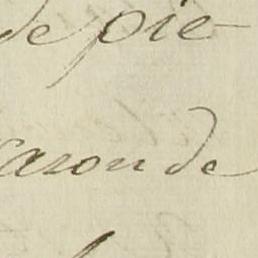 de pie
razon de